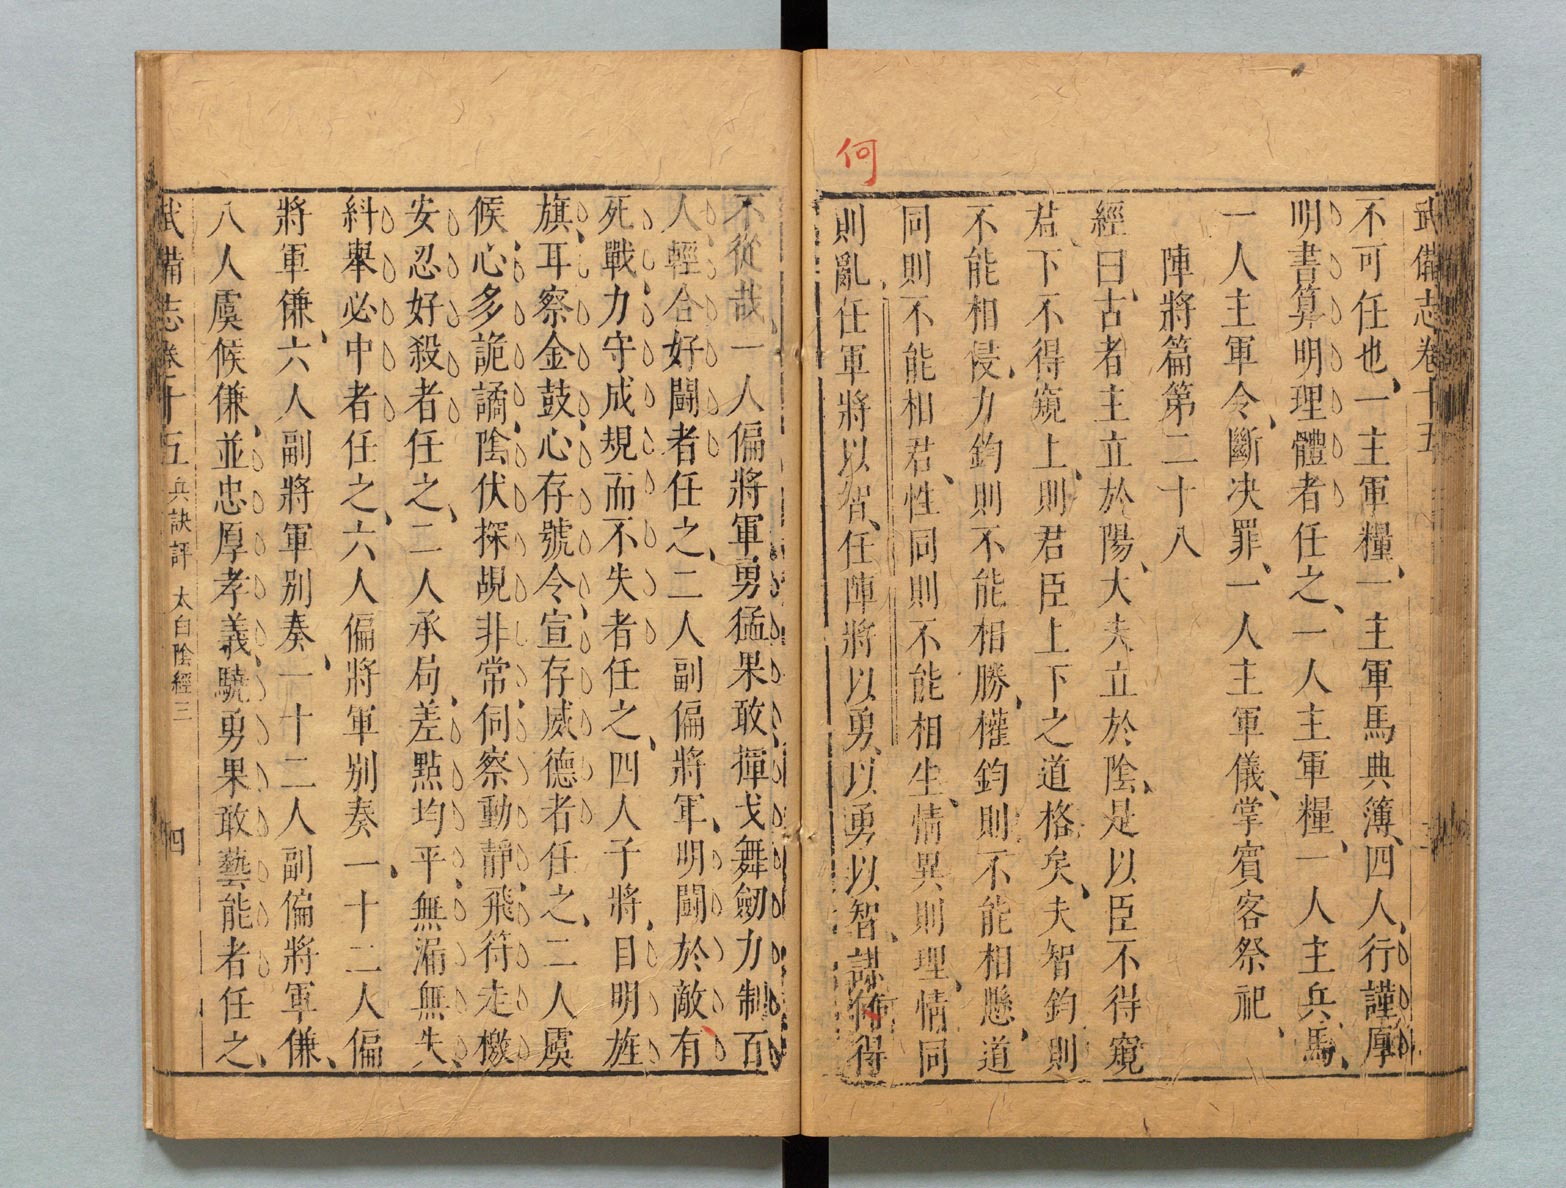 武備志卷十五
不可任也、一主軍糧、一主軍馬典簿、四人、行謹厚
明書算明理體者任之、一人主軍糧、一人主兵馬、
一人主軍令、斷決罪、一人主軍儀、掌賓客祭祀、
陣將篇第二十八
經曰、古者主立於陽、大夫立於陰、是以臣不得窺
君、下不得窺上、則君臣上下之道格矣、夫智鈞則
不能相侵、力鈞則不能相勝、權鈞則不能相懸、道
同則不能相君、性同則不能相生、情異則理、情同
則亂、任軍將以智、任陣將以勇、以勇以智、謀何得
何
不從哉、一人偏將軍勇猛果敢揮戈舞劒力制百
人輕合好鬪者任之、二人副偏將軍、明鬪於敵有
死戰、力守成規而不失者任之、四人子將、目明旌
旗、耳察金鼓、心存號令、宣存威德者任之、二人虞
候、心多詭譎、陰伏探覘非常、伺察動靜、飛符走檄
安忍好殺者任之、二人承局、差點均平、無漏無失、
糾舉必中者任之、六人偏將軍別奏、一十二人偏
將軍傔、六人副將軍別奏、一十二人副偏將軍傔、
八人虞候傔、並忠厚孝義、驍勇果敢藝能者任之、
武備志卷十五 兵訣評 太白陰經三 四